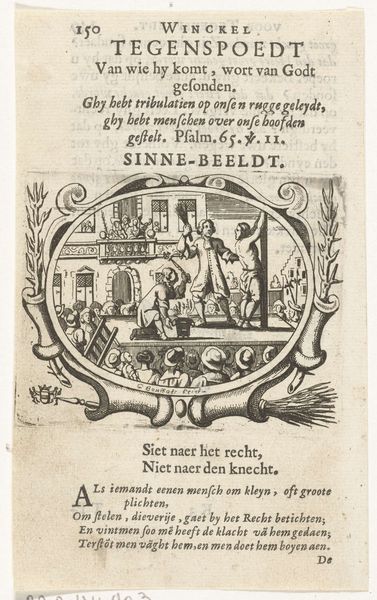 150 WINCKEL
TEGENSPOEDT
Van wie hy komt, wort van Godt
gesonden.
Ghy hebt tribulatien op onse n rugge geleydt,
ghy hebt menschen over onse hoofden
gestelt. Psalm. 65. ℣. 11.
SINNE-BEELDT.
Siet naer het recht,
Niet naer den knecht.
ALs iemandt eenen mensch om kleyn, oft groote
plichten,
Om stelen, dieverije, gaet by het Recht betichten;
En vintmen soo mē heeft de klacht vā hem gedaen;
Terstōt men vāght hem, en men doet hem boyen aen.
De